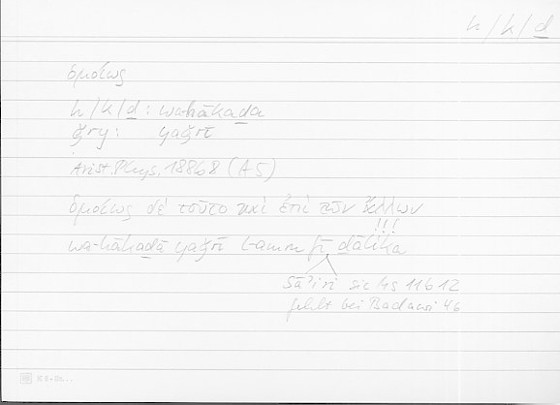 h / k / d̲
ὁμοίως
h / k / d̲ : wa-hākad̲a
ǧry : yaǧrī
Arist. Phys. 188b8 (A 5)
ὁμοίως δὲ τοῦτο καὶ ἐπὶ τῶν ἄλλων
!!!
wa-hākad̲ā yaǧrī l-amru fī d̲ālika
sāʾiri sic Hs 11b12
fehlt bei Badawi 46